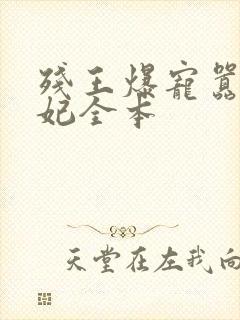 残王爆宠嚣
妃全本
天堂在左我向